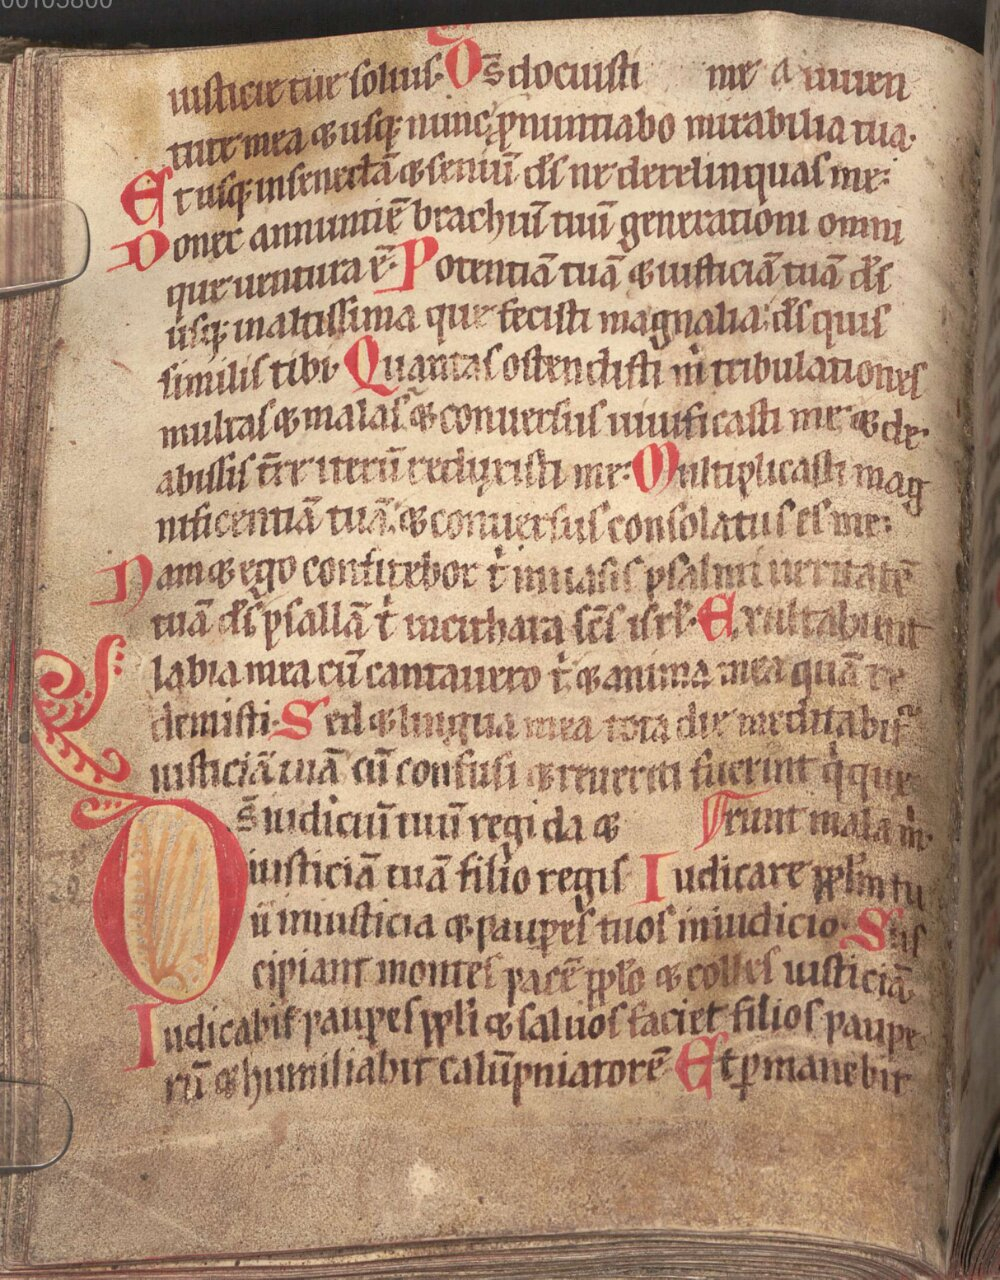 00105800
iusticie tue solius. Ds̄ docuisti me a iuuen
tute mea & usq; nunc ꝓnuntiabo mirabilia tua.
Et usq; in senectā & seniū ds̄ ne derelinquas me:
Donec annuntiē brachiū tuū generationi omni
que uentura ē. Potentiā tuā & iusticiā tuā ds̄
usq; in altissima que fecisti magnalia ds̄ quis
similis tibi. Quantas ostendisti m̄ tribulationes
multas & malas & conuersus uiuificasti me & de
abissis t̄re iterū reduxisti me: Multiplicasti mag
nificentiā tuā & conuersus consolatus es me:
Nam & ego confitebor t̄ in uasis psalmi ueritatē
tuā ds̄ psallā t̄ in cithara sc̄s isrl̄. Exultabunt
labia mea cū cantauero t̄ & anima mea quā re
demisti. Sed & lingua mea tota die meditabit᷑
iusticiā tuā cū confusi & reueriti fuerint q̇ que
Ds̄ iudiciū tuū regi da & runt mala m̄.
iusticiā tuā filio regis Iudicare ppl̄m tu
ū in iusticia & pauꝑes tuos in iudicio. Sus
cipiant montes pacē ppl̄o & colles iusticiā
Iudicabit pauꝑes ppl̄i & saluos faciet filios paupe
rū & humiliabit calūpniatorē Et ꝑmanebit